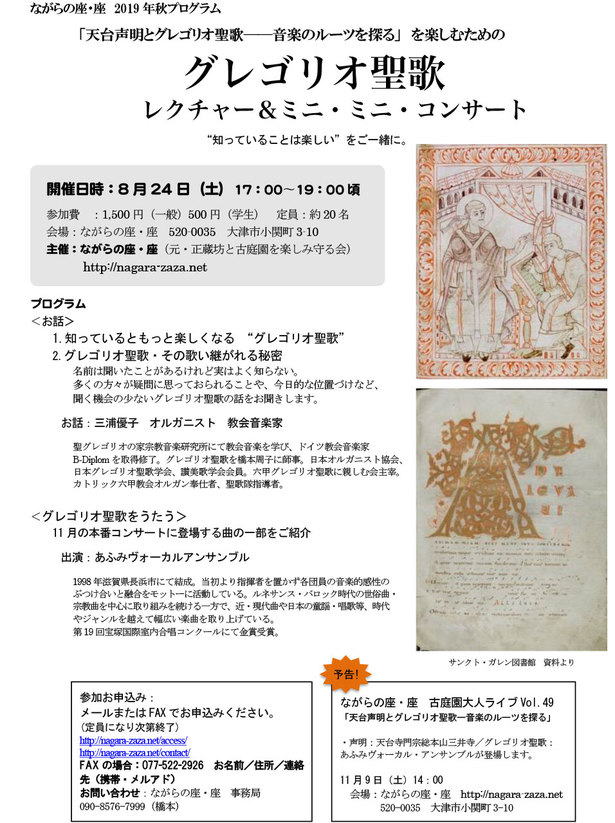 ながらの座・座　2019 年秋プログラム
「天台声明とグレゴリオ聖歌――音楽のルーツを探る」を楽しむための
グレゴリオ聖歌
レクチャー＆ミニ・ミニ・コンサート
“知っていることは楽しい”をご一緒に。
開催日時：８月２４日（土）１７：００～１９：００頃
参加費　：1,500 円（一般）500 円（学生）　定員：約 20 名
会場：ながらの座・座　520-0035　大津市小関町 3-10
主催：ながらの座・座（元・正蔵坊と古庭園を楽しみ守る会）
http://nagara-zaza.net
プログラム
＜お話＞
1. 知っているともっと楽しくなる　“グレゴリオ聖歌”
2. グレゴリオ聖歌・その歌い継がれる秘密
名前は聞いたことがあるけれど実はよく知らない。
多くの方々が疑問に思っておられることや、今日的な位置づけなど、
聞く機会の少ないグレゴリオ聖歌の話をお聞きします。
お話：三浦優子　オルガニスト　教会音楽家
聖グレゴリオの家宗教音楽研究所にて教会音楽を学び、ドイツ教会音楽家
B-Diplom を取得修了。グレゴリオ聖歌を橋本周子に師事。日本オルガニスト協会、
日本グレゴリオ聖歌学会、讃美歌学会会員。六甲グレゴリオ聖歌に親しむ会主宰。
カトリック六甲教会オルガン奉仕者、聖歌隊指導者。
＜グレゴリオ聖歌をうたう＞
11 月の本番コンサートに登場する曲の一部をご紹介
出演：あふみヴォーカルアンサンブル
1998 年滋賀県長浜市にて結成。当初より指揮者を置かず各団員の音楽的感性の
ぶつけ合いと融合をモットーに活動している。ルネサンス・バロック時代の世俗曲・
宗教曲を中心に取り組みを続ける一方で、近・現代曲や日本の童謡・唱歌等、時代
やジャンルを越えて幅広い楽曲を取り上げている。
第 19 回宝塚国際室内合唱コンクールにて金賞受賞。
サンクト・ガレン図書館　資料より
参加お申込み：
メールまたは FAX でお申込みください。
（定員になり次第終了）
http://nagara-zaza.net/access/
http://nagara-zaza.net/contact/
FAX の場合：077-522-2926　お名前／住所／連絡
先（携帯・メルアド）
お問い合わせ：ながらの座・座　事務局
090-8576-7999（橋本）
予告！
ながらの座・座　古庭園大人ライブ Vol. 49
「天台声明とグレゴリオ聖歌ー音楽のルーツを探る」
・声明：天台寺門宗総本山三井寺／グレゴリオ聖歌：
あふみヴォーカル・アンサンブルが登場します。
11 月 9 日（土）14：00
会場：ながらの座・座　http://nagara-zaza.net
520-0035　大津市小関町 3-10